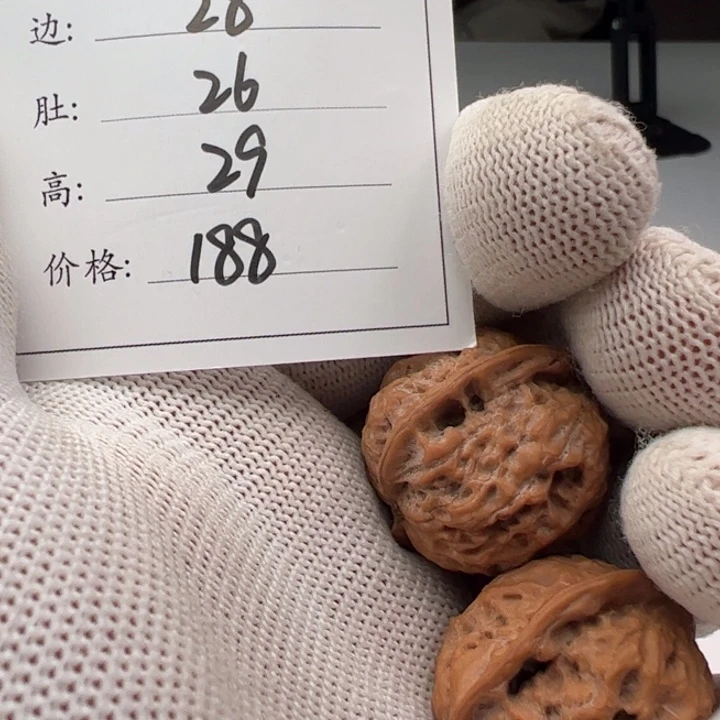 边: 28
肚: 26
高: 29
价格: 188